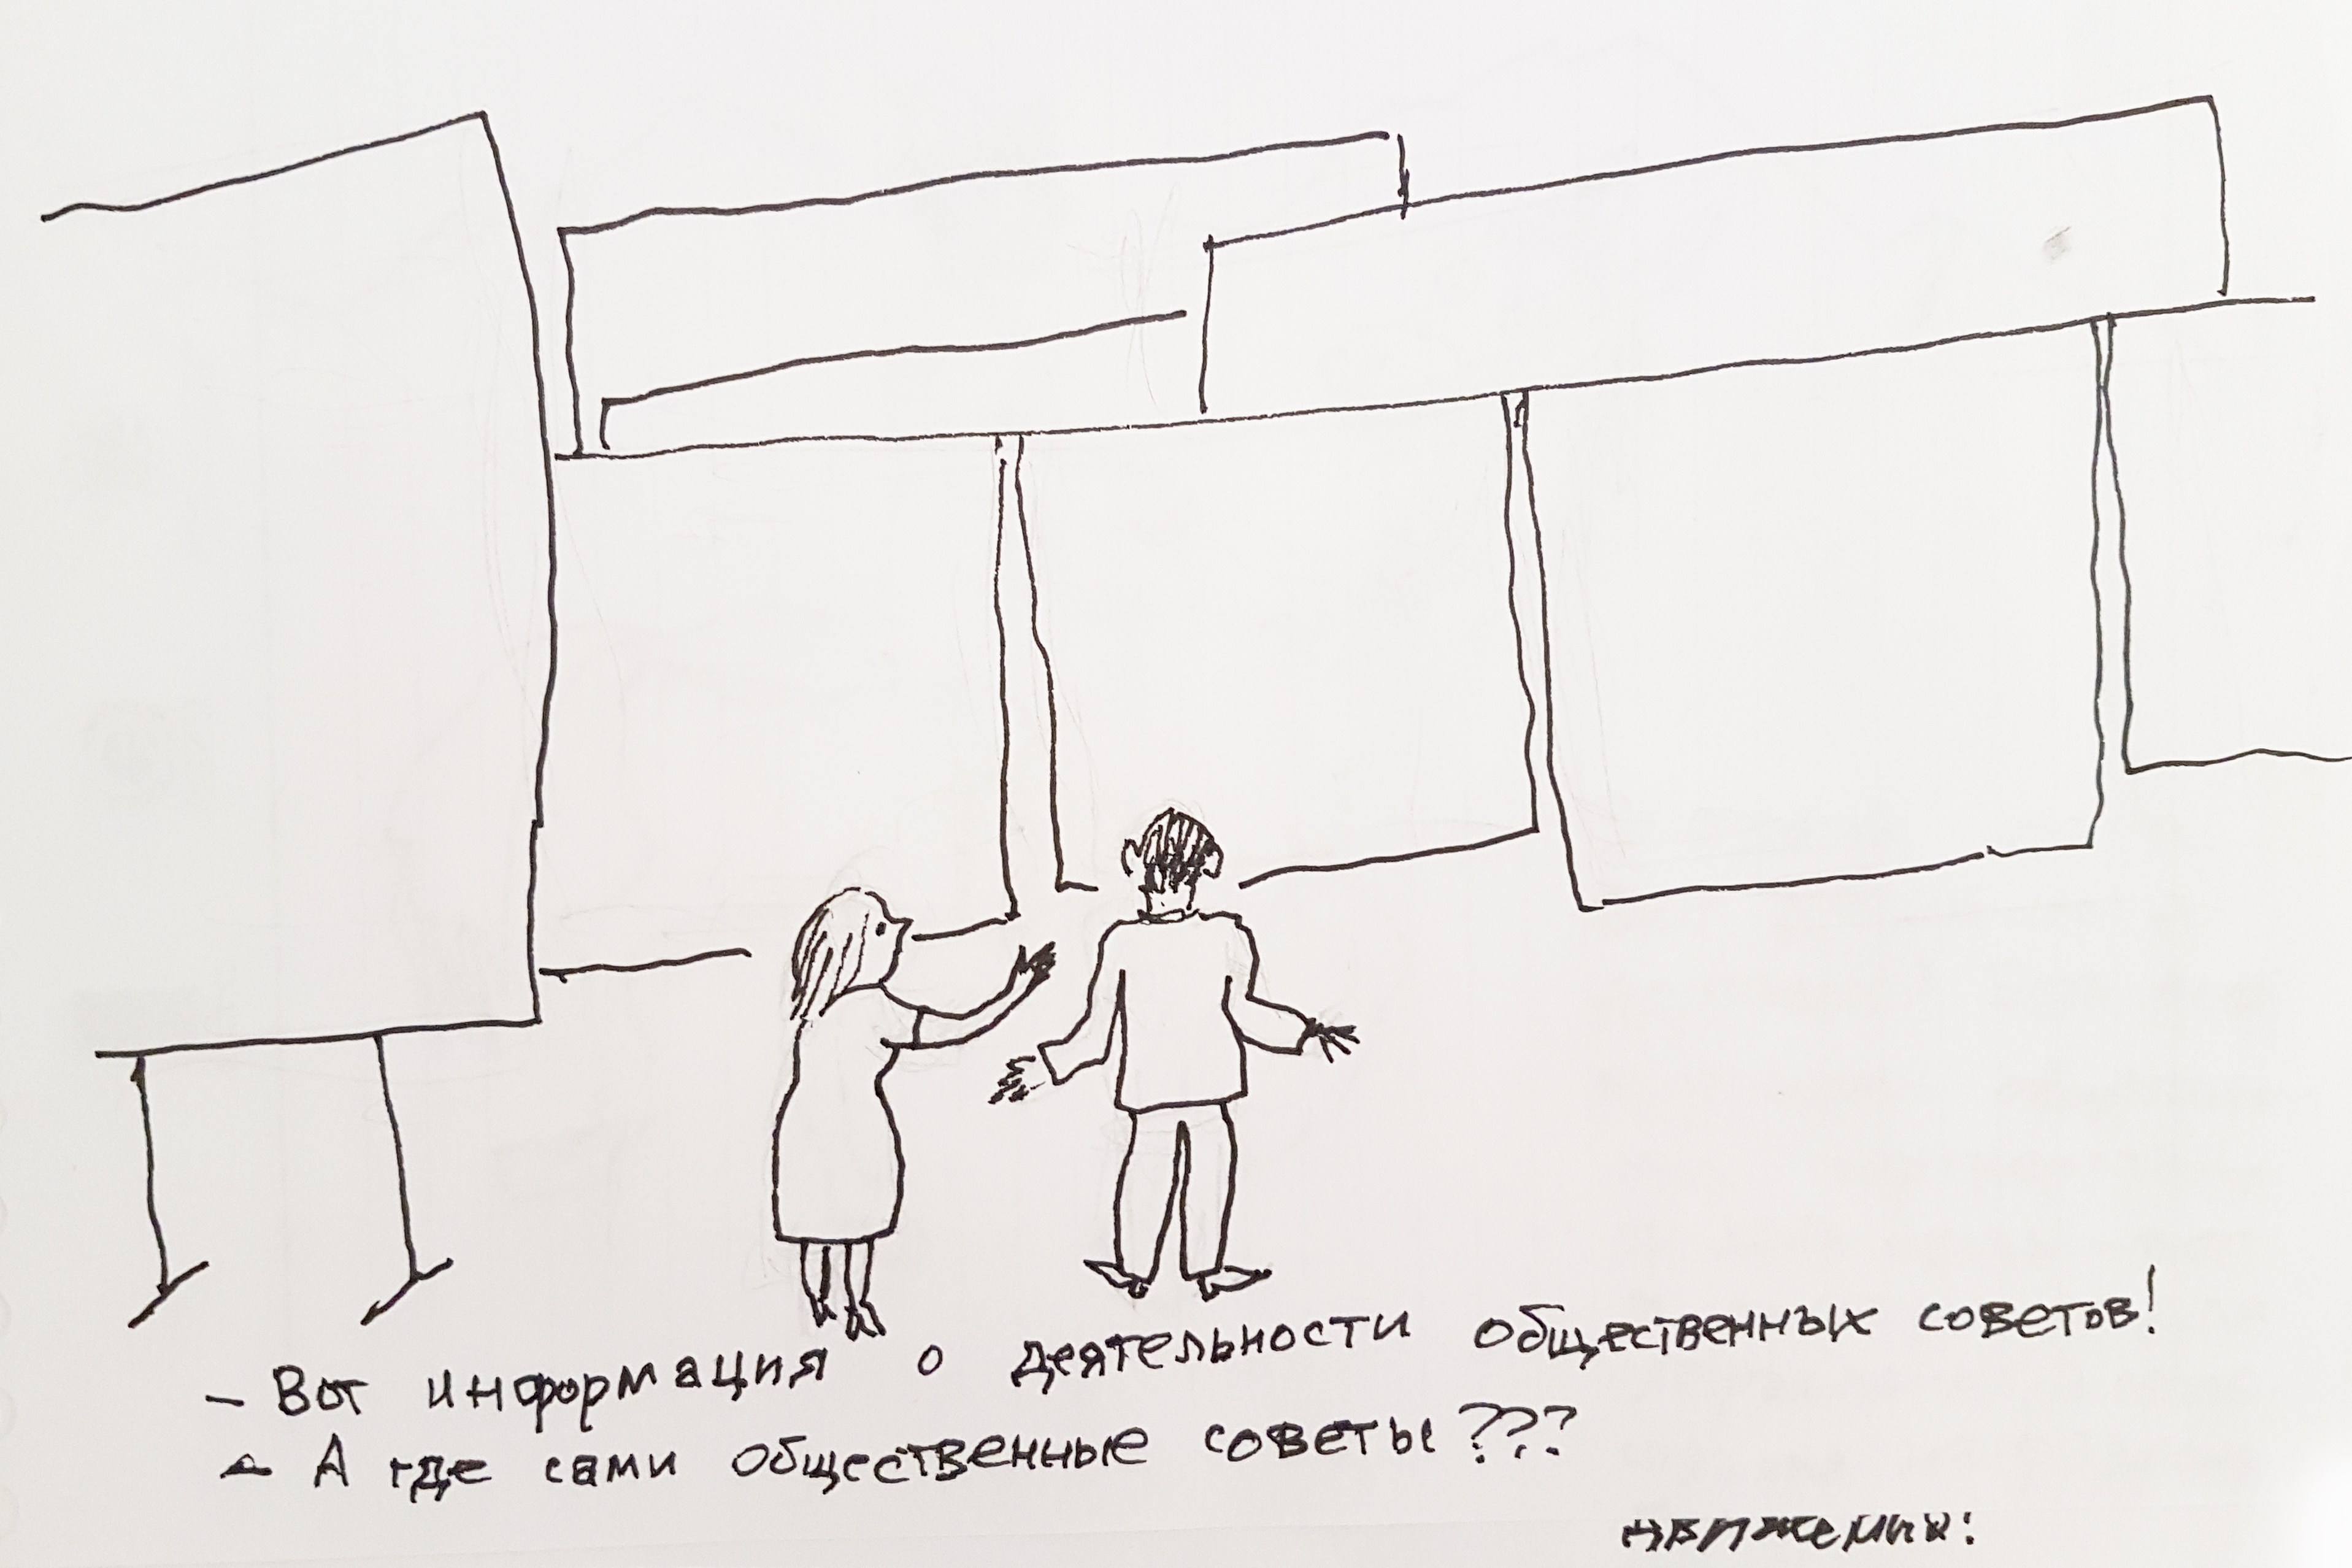 - Вот информация о деятельности общественных советов!
- А где сами общественные советы???